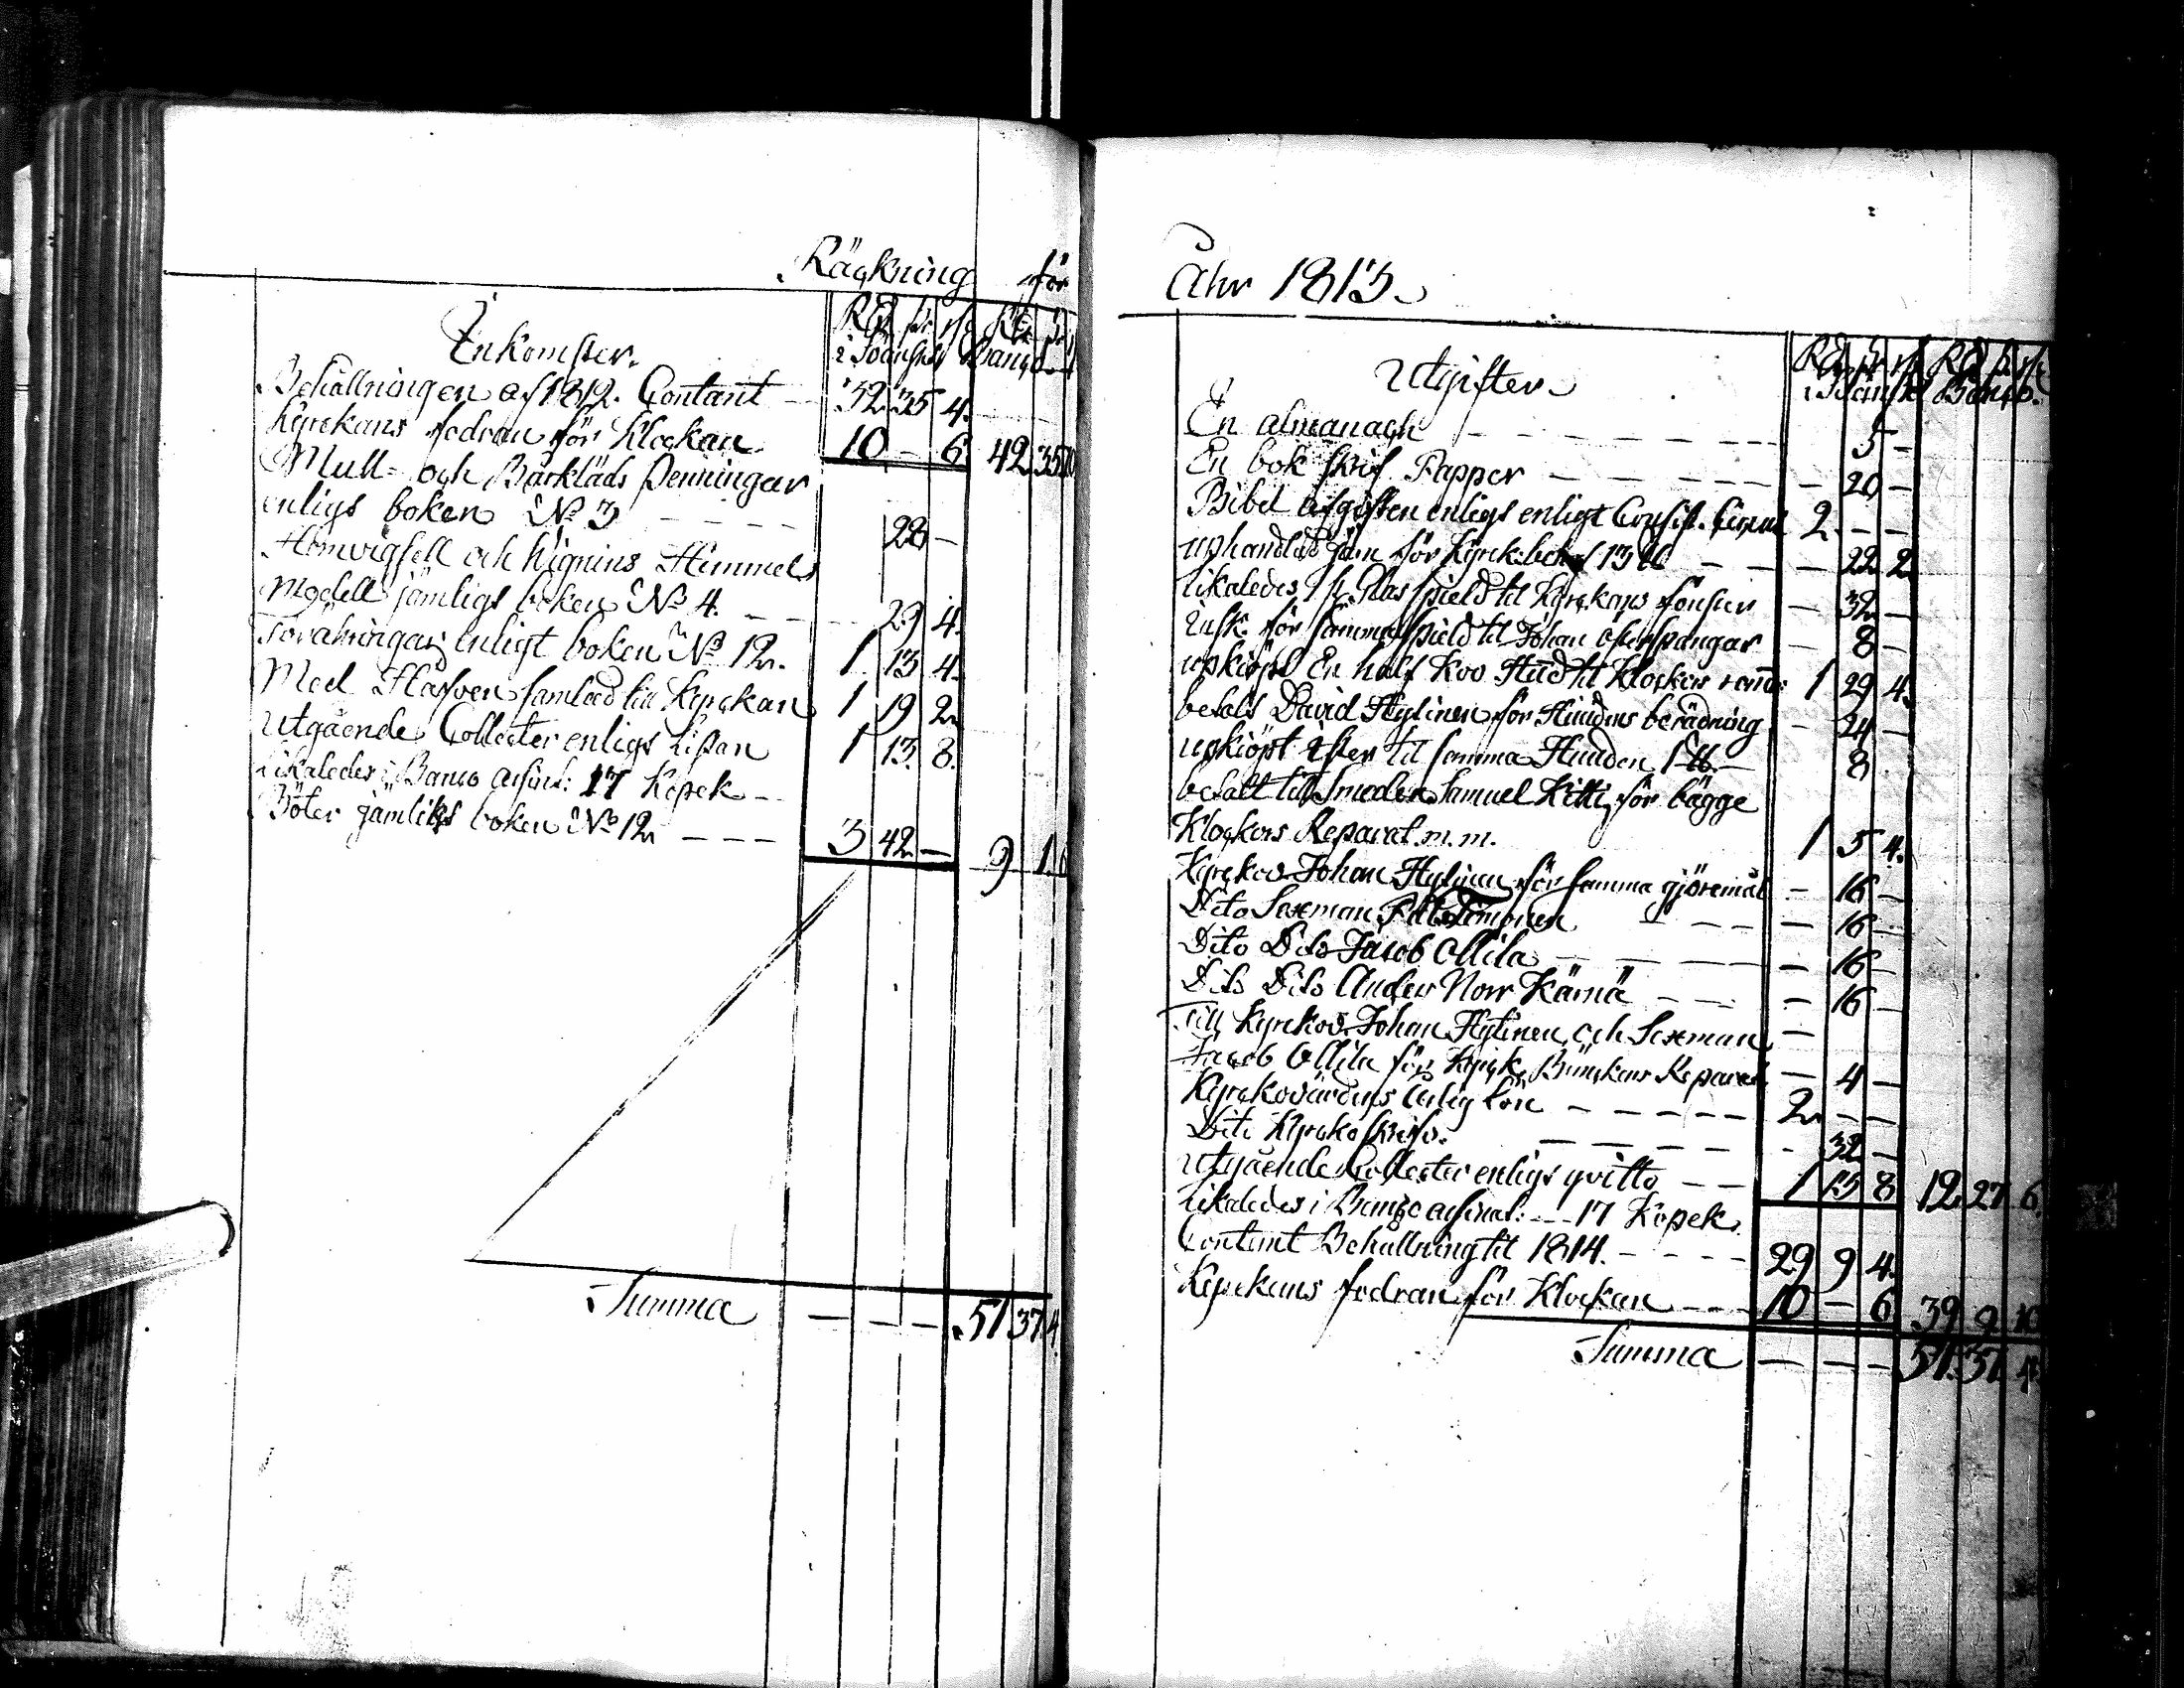 Räckning för
Inkomster.
Rd sk. rst. Rd sk. r.
i Svänska Banco
Behållningen af 1812. Contant 32 35 4.
Kyrckans fodran för Klockan 10 - 6 42 35 10
Mull- och Bårkläds Penningar
enligt boken No 3 28 -
Modell jämligt boken No 4. 29 4.
enligt boken No 12. 1 13 4.
Med Hafven samlad till Kyrckan 1 19 2
Utgående Collecter enligt Listan 1 13. 8.
Likaledes i Banco assinat: 17 Kopek
Böter jämlikt boken No 12 3 42 - 9 1 6
Summa 51 37 4.
Åhr 1813.
Utgifter
Rd sk rst Rd sk. rst.
i Svänsk Banco.
En almanach 5 -
En bok skrif Papper - 20 -
Bibel afgiften enligt enligt Consist. Circul 2 - -
uphandlat för Kyrck 13 - 22 2
likaledes Glas til Kyrckans fönster - 32 -
för samma til Johan - 8 -
upkiöpt En half Koo Hud til Klockors 1 29 4.
betalt David Hylinen för Hudens berädning - 24 -
upkiöpt til samma Huden 8
betalt till Smeden Samuel Kitti för bägge
Klockors Reparat. m. m. 1 5 4.
Kyrckov. Johan Hylinen för samma gjöremål - 16 -
Dito Sexman - 16 -
Dito Dito Jacob Ollila - 16 -
Dito Dito Anders Norr Kämä - 16 -
Till Kyrckov. Johan Hylinen och Sexman -
Jacob Ollila för Kyrck Bänckars Reparat. - 4 -
Kyrckovärdens årlig Lön 2 - -
Dito Kyrckoskrifv. - 32 -
Utgående Collecter enligt qvitto 1 13 8 12 27 6.
Likaledes i Banco assinat: 17 Kopek.
Contant Behållning til 1814. 29 9 4.
Kyrckans fodran för Klockan 10 - 6 39 9 10
Summa - - - 51. 37. 4.